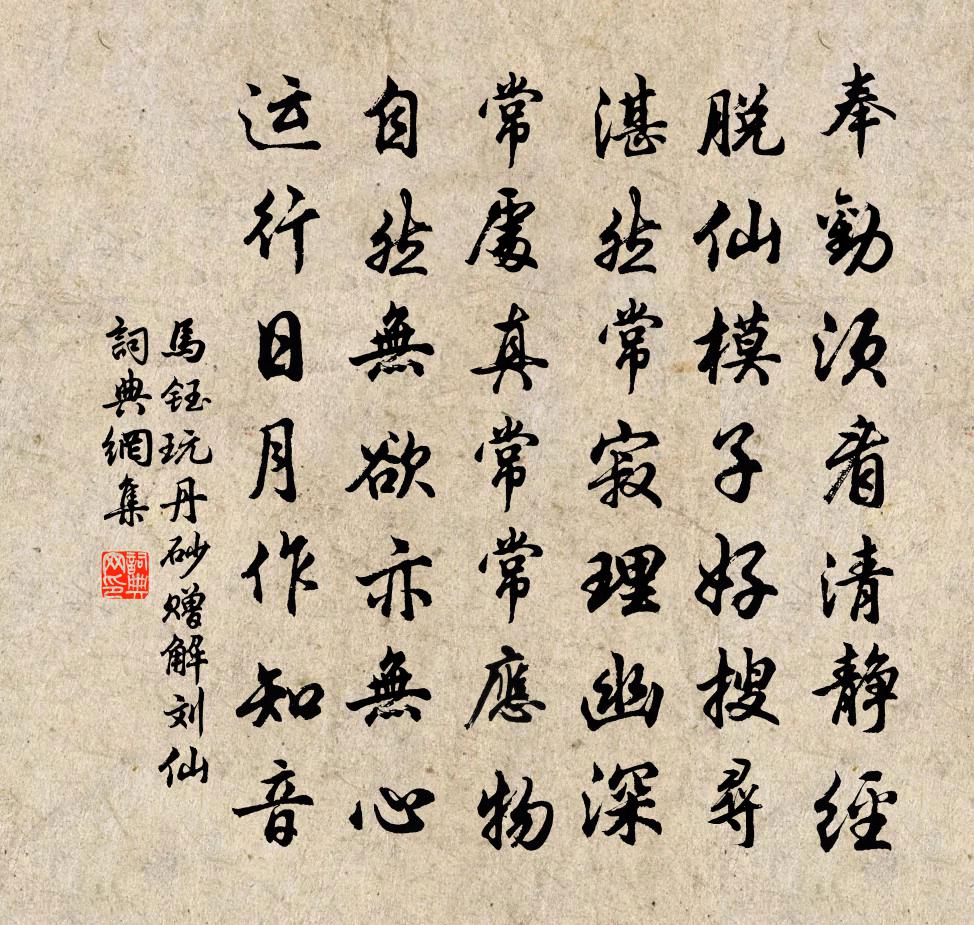 奉勸须看清静經
脱仙模子好搜尋
湛然常寂理幽深
常處真常常應物
自然無欲亦無心
运行日月作知音
馬钰玩丹砂赠解刘仙
詞典網集
詞典网印